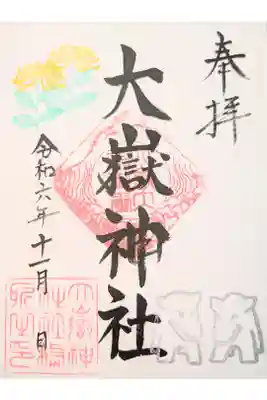 奉拝
大嶽神社
令和六年十一月 日